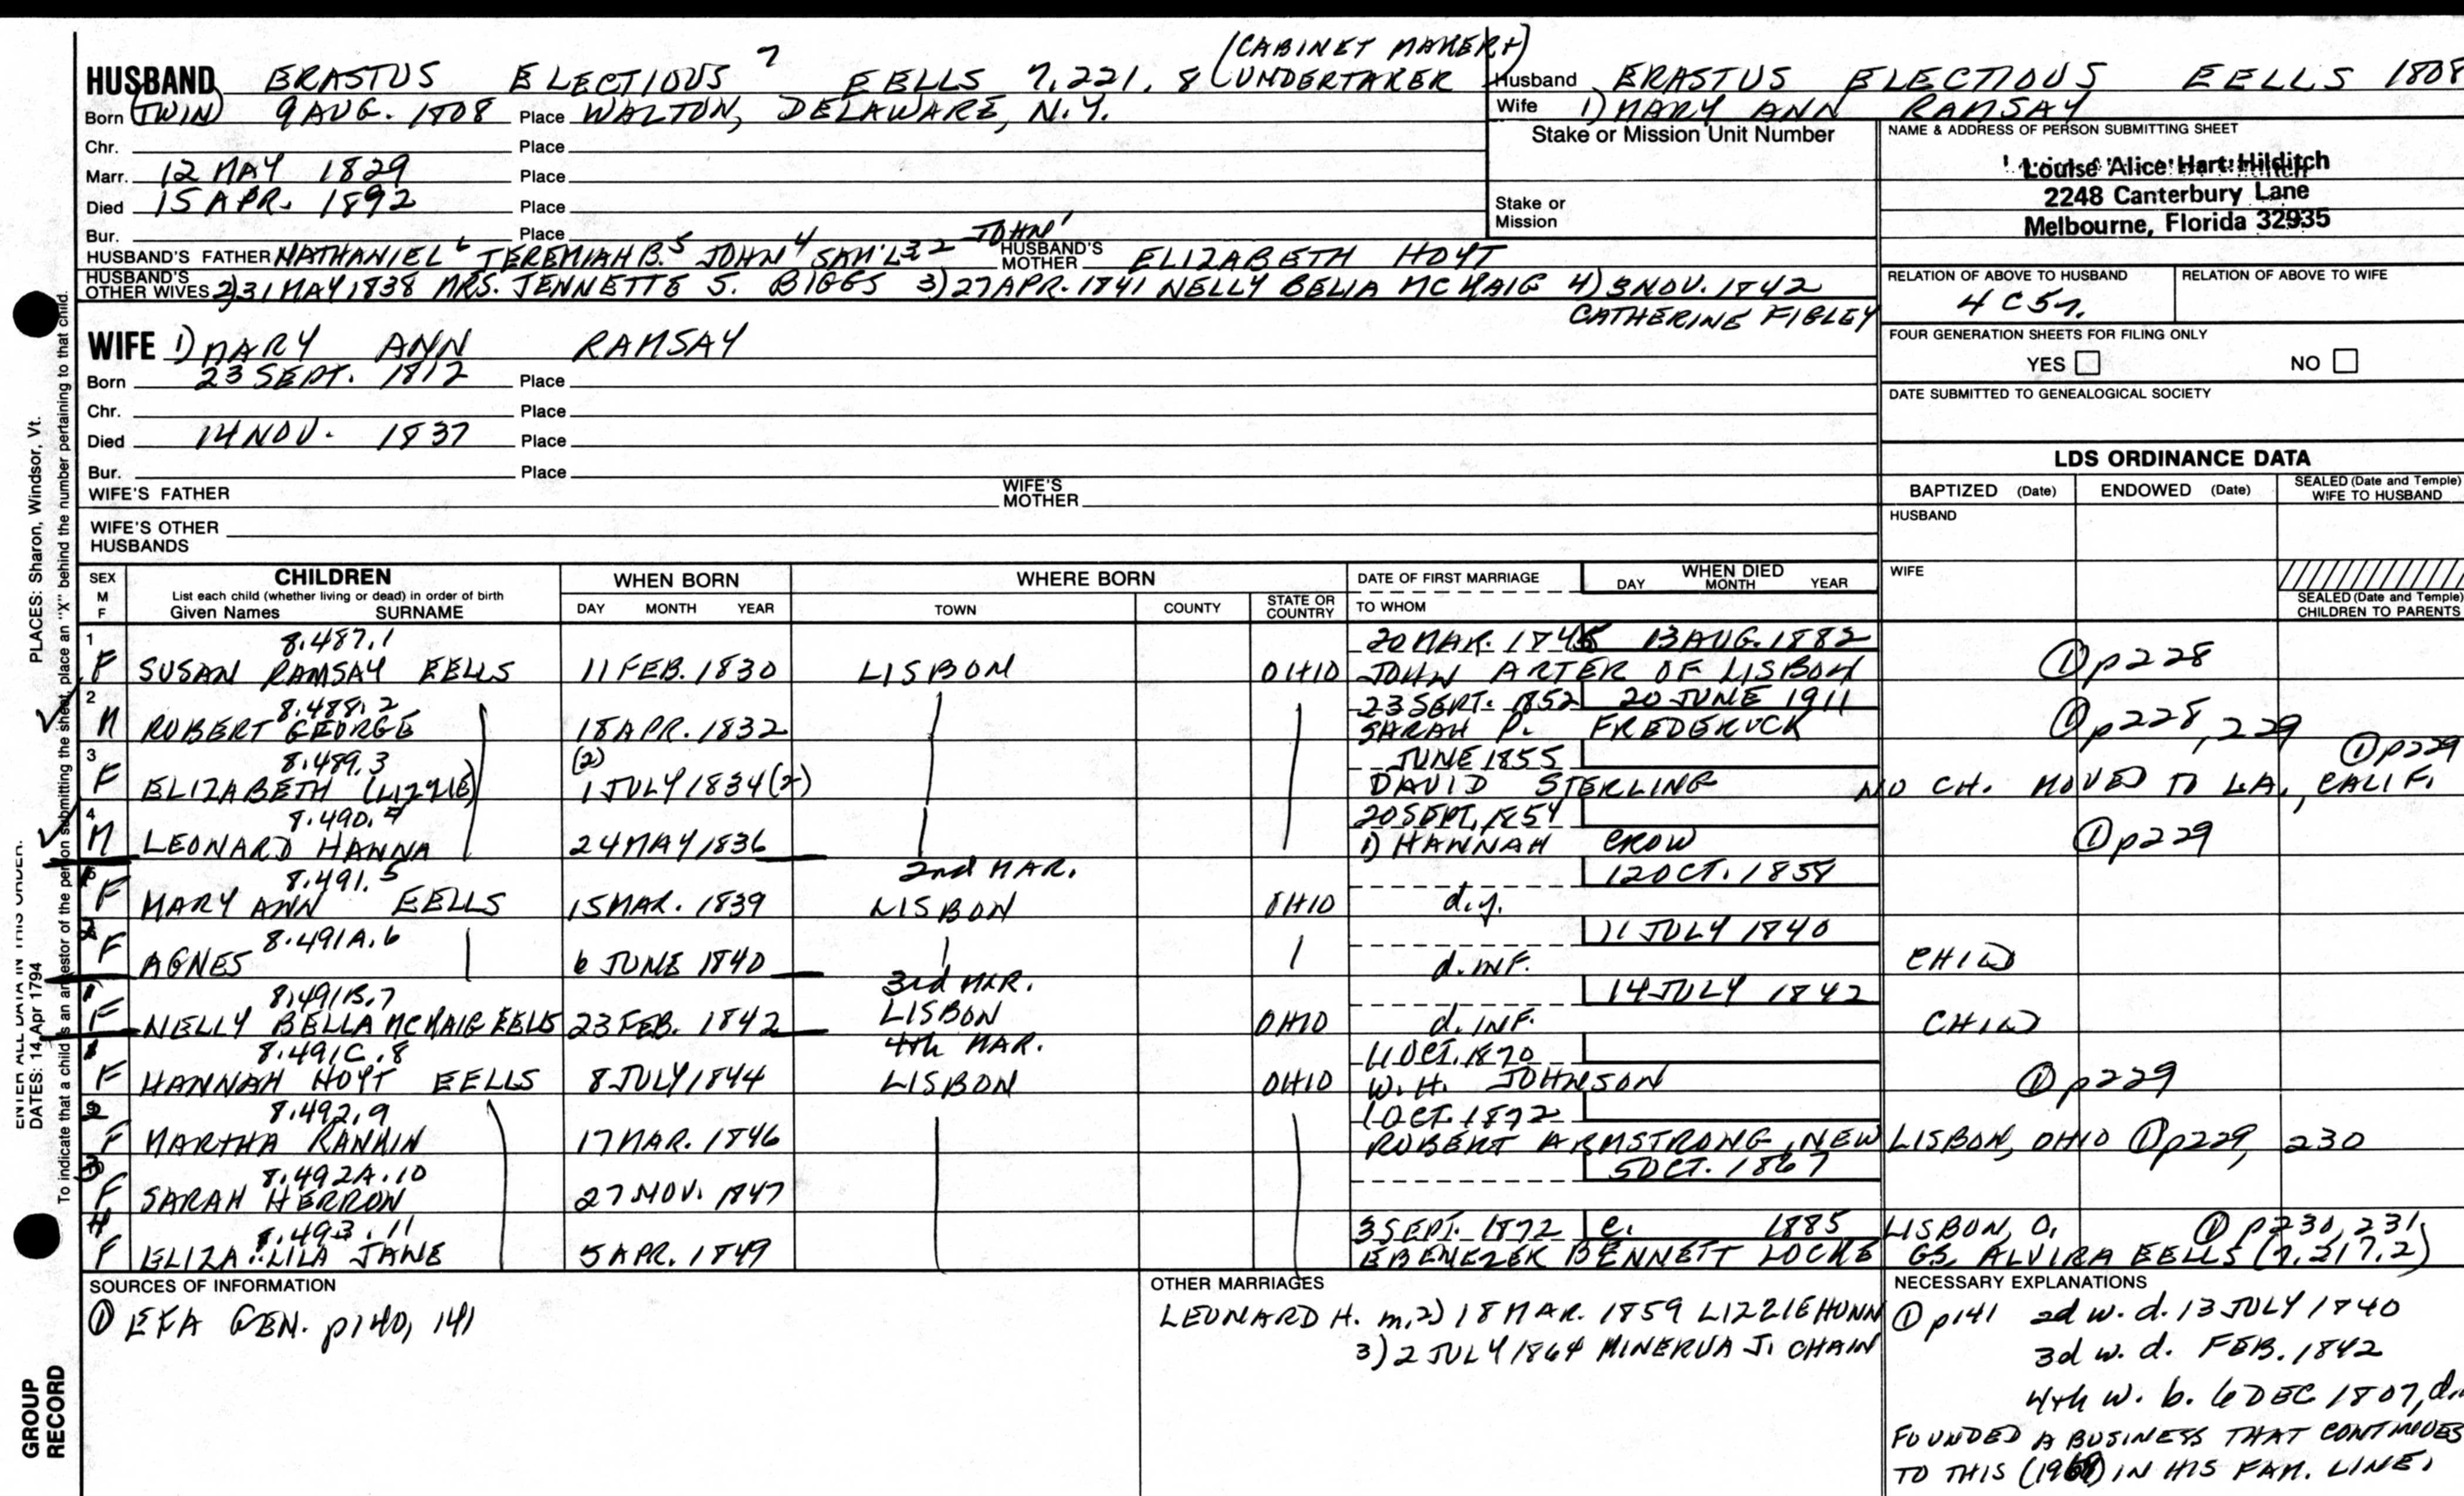 HUSBAND ERASTUS ELECTIOUS 7 EELLS 7.221.8 (CABINET MAKER + UNDERTAKER
Born (TWIN) 9 AUG. 1808 Place WALTON, DELAWARE, N.Y.
Chr. Place
Marr. 12 MAY 1829 Place
Died 15 APR. 1892 Place
Bur. Place
HUSBAND'S FATHER NATHANIEL 6 JEREMIAH B. 5 JOHN 4 SAM'L 3 2 JOHN 1 HUSBAND'S MOTHER ELIZABETH HOYT
HUSBAND'S OTHER WIVES 2) 31 MAY 1838 MRS. JENNETTE S. BIGGS 3) 27 APR. 1841 NELLY BELIA MCKAIG 4) 3 NOV. 1842
CATHERINE FIBLEY
WIFE 1) MARY ANN RAMSAY
Born 23 SEPT. 1812 Place
Chr. Place
Died 14 NOV. 1837 Place
Bur. Place
WIFE'S FATHER WIFE'S MOTHER
WIFE'S OTHER HUSBANDS
Husband ERASTUS ELECTIOUS EELLS 1808
Wife 1) MARY ANN RAMSAY
Stake or Mission Unit Number
Stake or Mission
NAME & ADDRESS OF PERSON SUBMITTING SHEET
Louise Alice Hart Hilditch
2248 Canterbury Lane
Melbourne, Florida 32935
RELATION OF ABOVE TO HUSBAND RELATION OF ABOVE TO WIFE
4 C 5r.
FOUR GENERATION SHEETS FOR FILING ONLY
YES NO
DATE SUBMITTED TO GENEALOGICAL SOCIETY
LDS ORDINANCE DATA
BAPTIZED (Date) ENDOWED (Date) SEALED (Date and Temple) WIFE TO HUSBAND
HUSBAND
WIFE
SEALED (Date and Temple) CHILDREN TO PARENTS
SEX M F CHILDREN List each child (whether living or dead) in order of birth Given Names SURNAME
WHEN BORN DAY MONTH YEAR
WHERE BORN TOWN COUNTY STATE OR COUNTRY
DATE OF FIRST MARRIAGE TO WHOM
WHEN DIED DAY MONTH YEAR
1 8.487.1 20 MAR. 1848 13 AUG. 1882
F SUSAN RAMSAY EELLS 11 FEB. 1830 LISBON OHIO JOHN ARTER OF LISBON ① p228
2 8.488.2 23 SEPT. 1852 20 JUNE 1911
M ROBERT GEORGE 18 APR. 1832 SARAH P. FREDERICK ① p228, 229
3 8.489.3 (2) JUNE 1855 ① p229
F ELIZABETH (LIZZIE) 1 JULY 1834 (2) DAVID STERLING NO CH. MOVED TO L.A., CALIF.
4 8.490.4 20 SEPT. 1854
M LEONARD HANNA 24 MAY 1836 1) HANNAH CROW ① p229
8.491.5 2nd MAR. 12 OCT. 1854
F MARY ANN EELLS 15 MAR. 1839 LISBON OHIO d.y.
8.491A.6 11 JULY 1840
F AGNES 6 JUNE 1840 d. INF. CHILD
8.491B.7 3rd MAR. 14 JULY 1842
F NELLY BELLA MCKAIG EELLS 23 FEB. 1842 LISBON OHIO d. INF. CHILD
8.491C.8 4th MAR. 11 OCT. 1870
F HANNAH HOYT EELLS 8 JULY 1844 LISBON OHIO W.H. JOHNSON ① p229
8.492.9 1 OCT. 1872
F MARTHA RANKIN 17 MAR. 1846 ROBERT ARMSTRONG, NEW LISBON, OHIO ① p229, 230
8.492A.10 5 OCT. 1867
F SARAH HERRON 27 NOV. 1847
8.493.11 3 SEPT. 1872 c. 1885 LISBON, O. ① p230, 231
F ELIZA LILA JANE 5 APR. 1849 EBENEZER BENNETT LOCKE GS. ALVIRA EELLS (7.217.2)
SOURCES OF INFORMATION
① GEN. p140, 141
OTHER MARRIAGES
LEONARD H. m. 2) 18 MAR. 1859 LIZZIE HUNN
3) 2 JULY 1864 MINERVA J. CHAIN
NECESSARY EXPLANATIONS
① p141 2d w. d. 13 JULY 1840
3d w. d. FEB. 1842
4th w. b. 6 DEC 1807, d.
FOUNDED A BUSINESS THAT CONTINUES
TO THIS IN HIS FAM. LINE.
PLACES: Sharon, Windsor, Vt.
ENTER ALL DATA IN THIS ORDER:
DATES: 14 Apr 1794
To indicate that a child is an ancestor of the person submitting the sheet, place an "X" behind the number pertaining to that child.
GROUP
RECORD